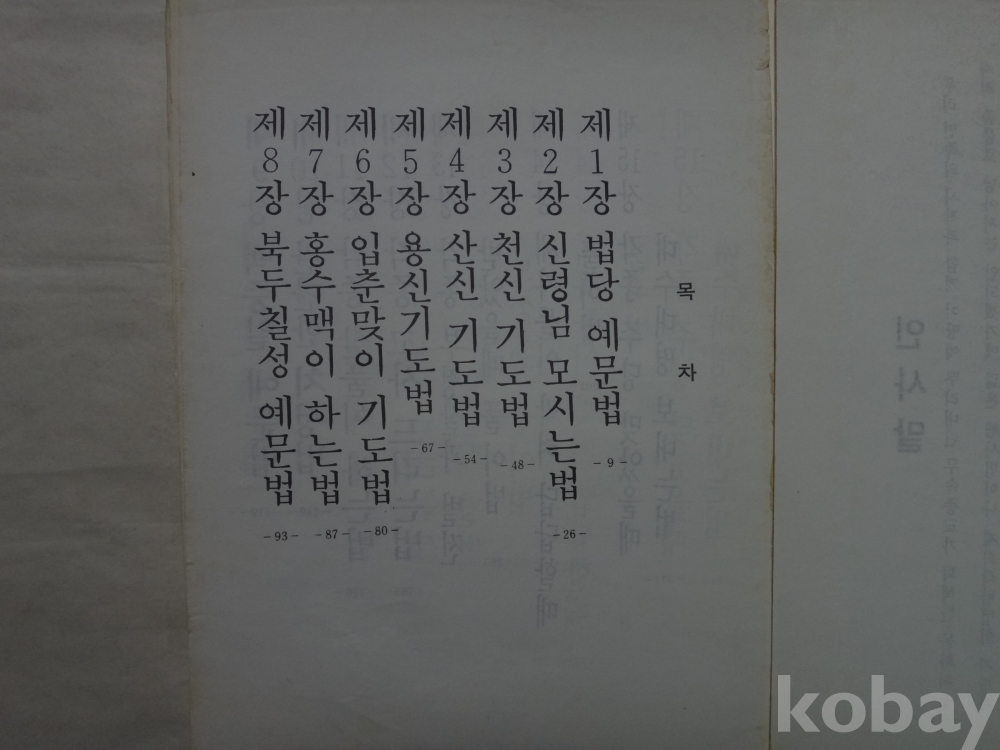 목차
제1장 법당 예문법 -9-
제2장 신령님 모시는법 -26-
제3장 천신 기도법 -48-
제4장 산신 기도법 -54-
제5장 용신기도법 -67-
제6장 입춘맞이 기도법 -80-
제7장 홍수맥이 하는법 -87-
제8장 북두칠성 예문법 -93-
인사말
kobay